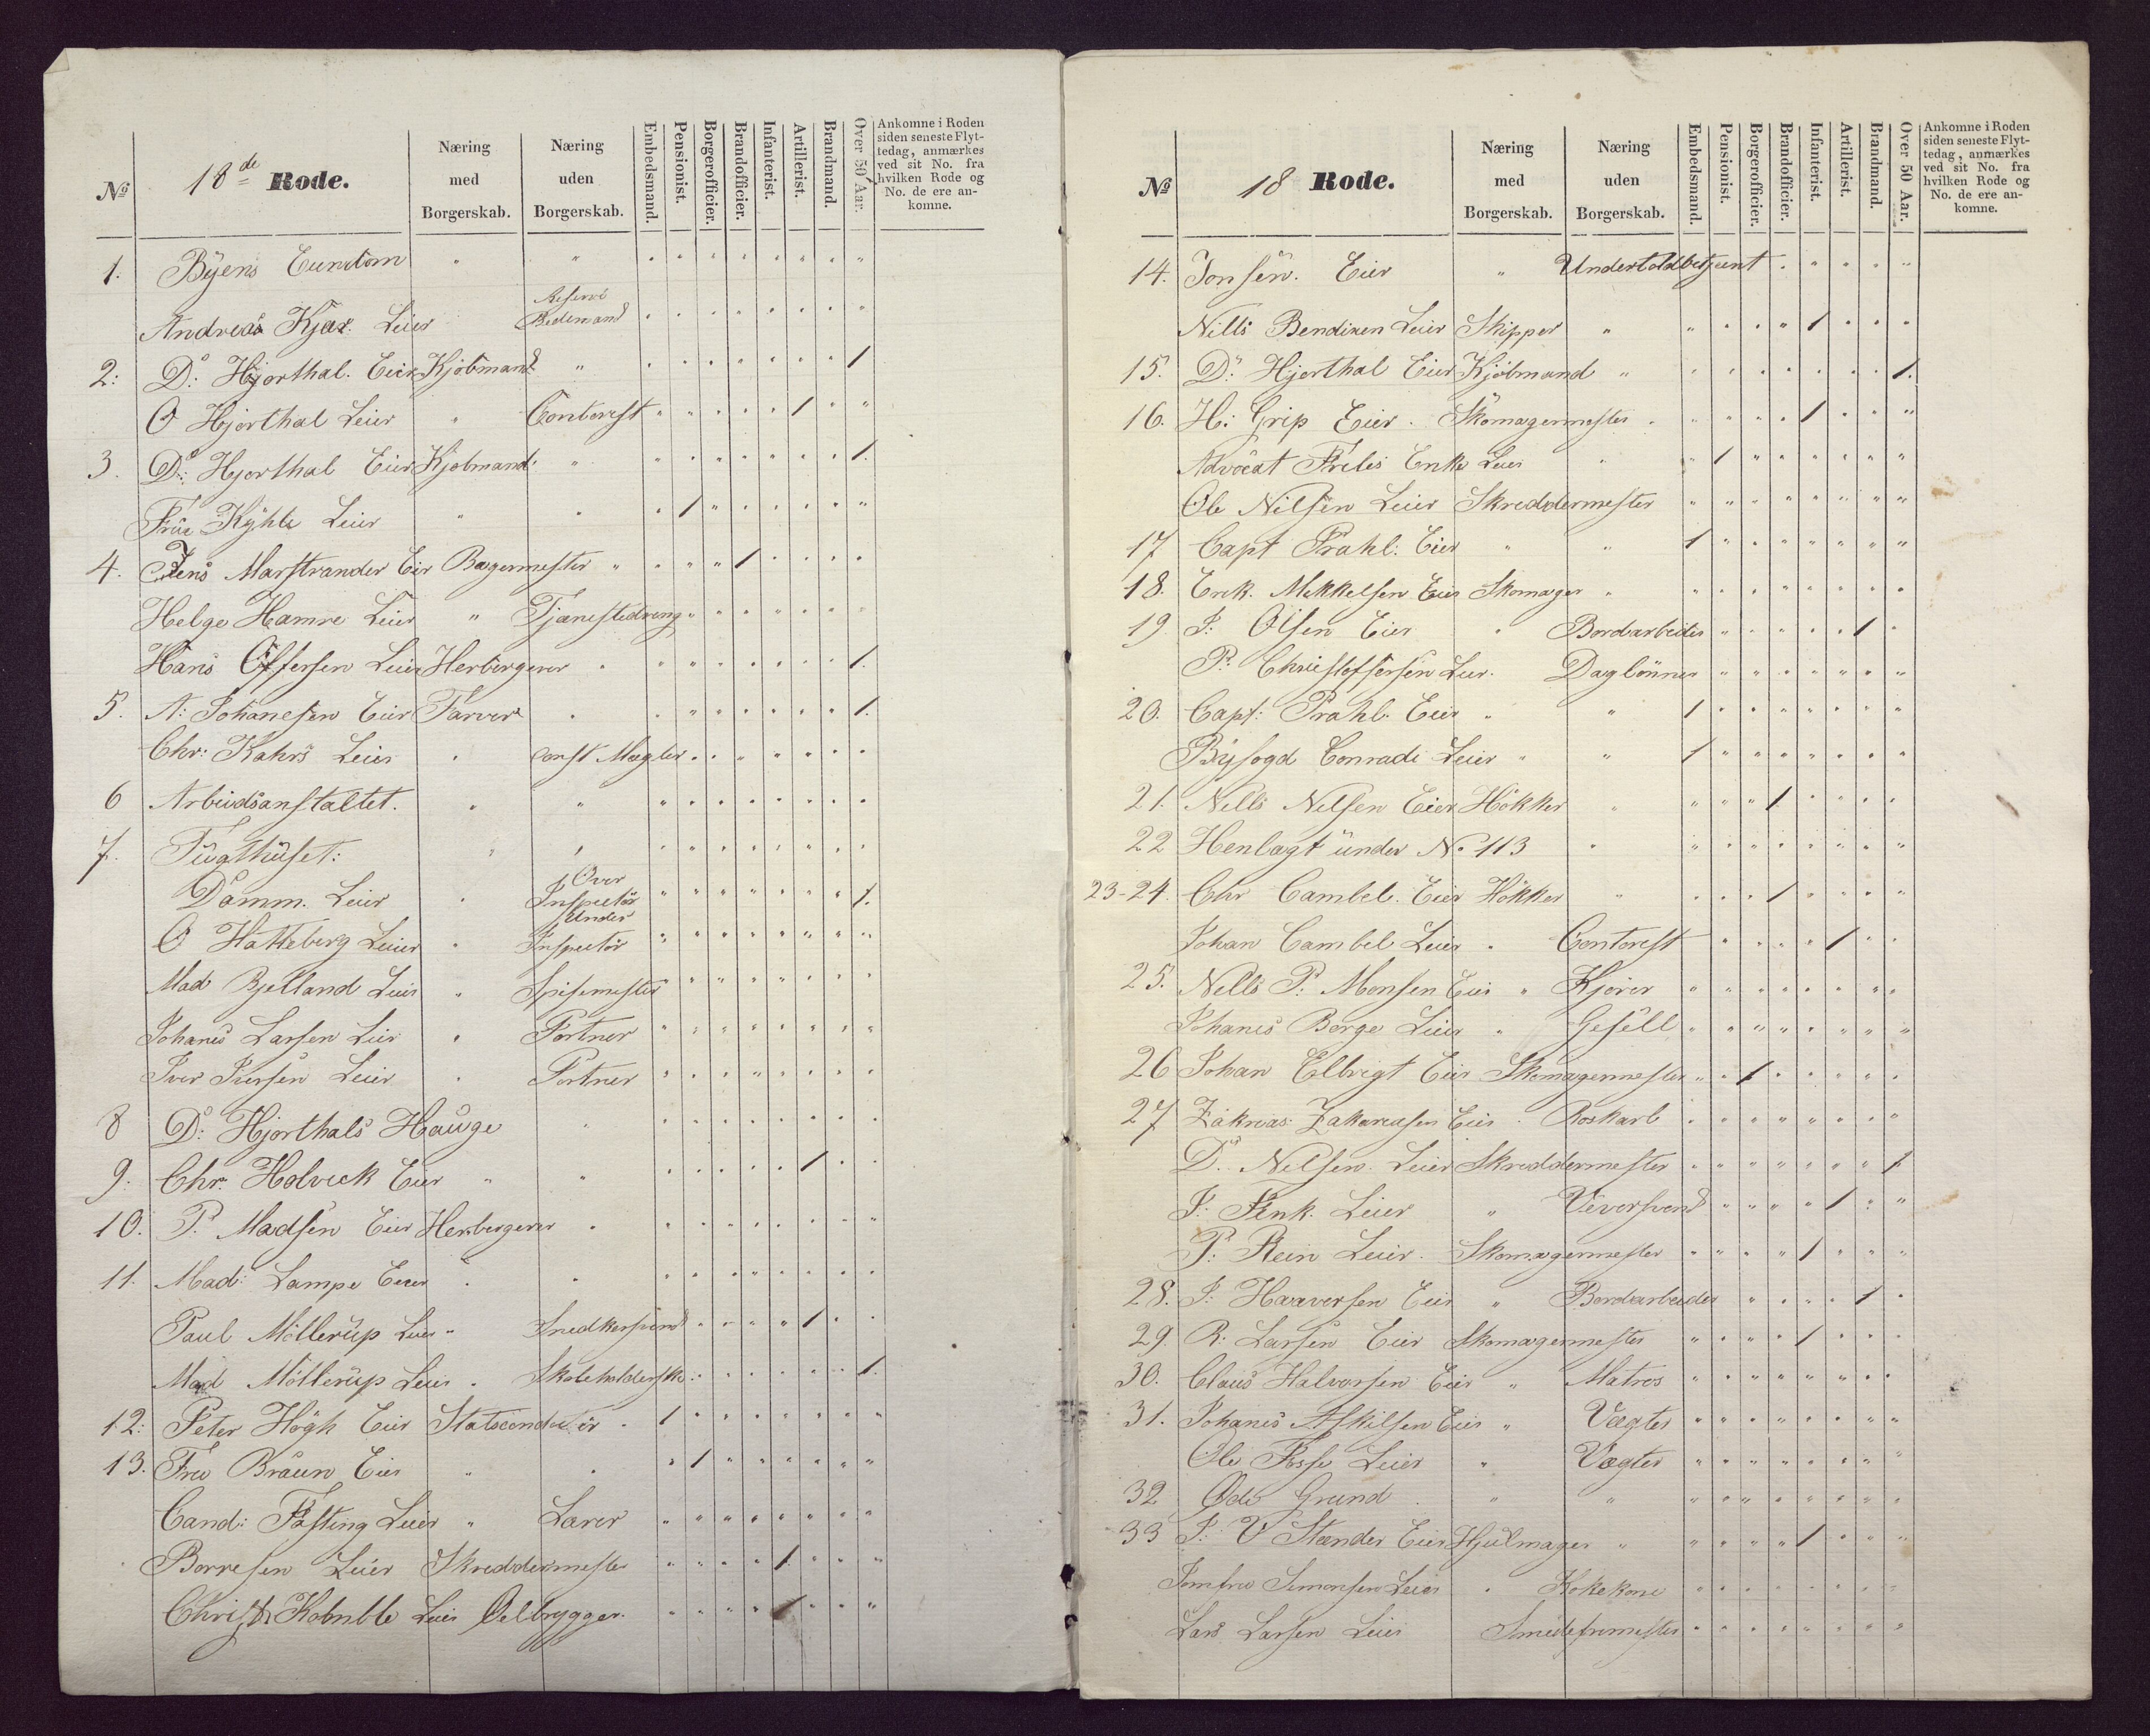 No 18de Rode. Næring med Borgerskab. Næring uden Borgerskab. Embedsmand. Pensionist. Borgerofficier. Brandofficier. Infanterist. Artillerist. Brandmand. Over 50 Aar. Ankomne i Roden siden seneste Flyttedag, anmærkes ved sit No. fra hvilken Rode og No. de ere ankomne.
1. Byens Eiendom " " " " " " " " " "
Andreas Kjær. Leier Reserve Bedemand " " " " " " " "
2: D: Hjorthal. Eier Kjøbmand " " " " " " " " 1
O Hjorthal Leier " Contorist " " " " " 1 " "
3. D: Hjorthal Eier Kjøbmand " " " " " " " " 1.
Frue Kyhle Leier " " " 1 " " " " " "
4. Jens Marstrander Eier Bagermester " " " " 1 " " " "
Helge Hamre Leier " Tjenestedreng " " " " " " "
Hans Offersen Leier Herbergerer " " " " " " " " 1.
5. A: Johanesen Eier Farver " " " " " " " " 1.
Chr: Kahrs Leier " const Mægler " " " " " " " "
6 Arbeidsanstaltet. " " " " " " " " " "
7. Tugthuset: " " " " " " " " " "
Damm. Leier " Over Inspectör " " " " " " " 1.
O Hatteberg Leier " Under Inspectör " " " " " " " "
Mad Bjelland Leier " Spisemester " " " " " " " "
Johanes Larsen Leier " Portner " " " " " " " "
Iver Iversen Leier " Portner " " " " " " " "
8 D: Hjorthals Hauge " " " " " " " " "
9. Chr. Holvick Eier " " " " " " " 1 " "
10. P. Madsen Eier Herbergerer " " " " " " " " "
11. Mad: Lampe Eier " " " " " " " " " "
Paul Möllerup Leier " Snedkersvend " " " " 1 " "
Mad Möllerup Leier " Skoleholderske " " " " " " " 1.
12: Peter Högh Eier Statsconducteör " 1 " " " " " " "
13. Frue Braun Eier " " " 1 " " " " " "
Cand: Fasting Leier " Lærer " " " " " " " "
Borresen Leier Skreddermester " " " " 1 " " "
Christ Leier Oelbrygger. " " " " 1 " " "
No 18 Rode. Næring med Borgerskab. Næring uden Borgerskab. Embedsmand. Pensionist. Borgerofficier. Brandofficier. Infanterist. Artillerist. Brandmand. Over 50 Aar. Ankomne i Roden siden seneste Flyttedag, anmærkes ved sit No. fra hvilken Rode og No. de ere ankomne.
14. Jonsen. Eier " Undertoldbetjent " " " " "
Nills Bendixen Leier Skipper " " " " " 1 " " "
15. D: Hjorthal Eier Kjöbmand " " " " " " " " 1.
16. H: Grip Eier. Skomagermester " " " " " 1 " " "
Advocat Enke Leier " " 1 " " " " " "
Ole Nilsen Leier Skreddermester " " " " " " " "
17 Capt Prahl. Eier " " 1 " " " " " " "
18. Erik. Mikkelsen Eier Skomager " " " " " " " " "
19. J: Olsen Eier " Bordarbeider " " " " " 1 "
P. Christoffersen Leier. Daglönner " " " " " " "
20. Capt: Prahl. Eier " " 1 " " " " " " "
Byfogd Conradi Leier " " 1 " " " " " " "
21. Nills Nilsen Eier Hökker " " " " 1 " " " "
22 Henlagt under No 113 " " " " " " " " "
23-24. Chr Cambel. Eier Hökker " " " " 1 " " " "
Johan Cambel Leier " Contorist " " " " 1 " "
25. Nills P. Monsen Eier " Kjörer " " " " " " " "
Johanes Berge Leier " Gesell " " " " " " " "
26 Johan Ellvigt Eier Skomagermester " " 1 " " " " "
27 Zakrias Zakariasen Eier " Roskarl " " " " " " " "
D. Nilsen. Leier Skreddermester " " " " " " " 1
J: Fink. Leier " Væversvend " " " " 1 " "
P. Rein Leier. Skomagermester " " " " 1 " " "
28. J: Haaversen Eier " Bordarbeider " " " " 1 "
29. R. Larsen Eier Skomagermester " " " " 1 " " "
30. Claus Halvorsen Eier " Matros " " " " " " " "
31. Johanes Askilsen Eier " Vægter " " " " " " " "
Ole Fosse Leier " Vægter " " " " " " " "
32 Öde Grund " " " " " " " " " "
33 J: V Stender Eier Hjulmager " " " " " 1 " " "
Jomfru Simonsen Leier " Kokekone " " " " " " " "
Lars Larsen Leier " " " " " " " "